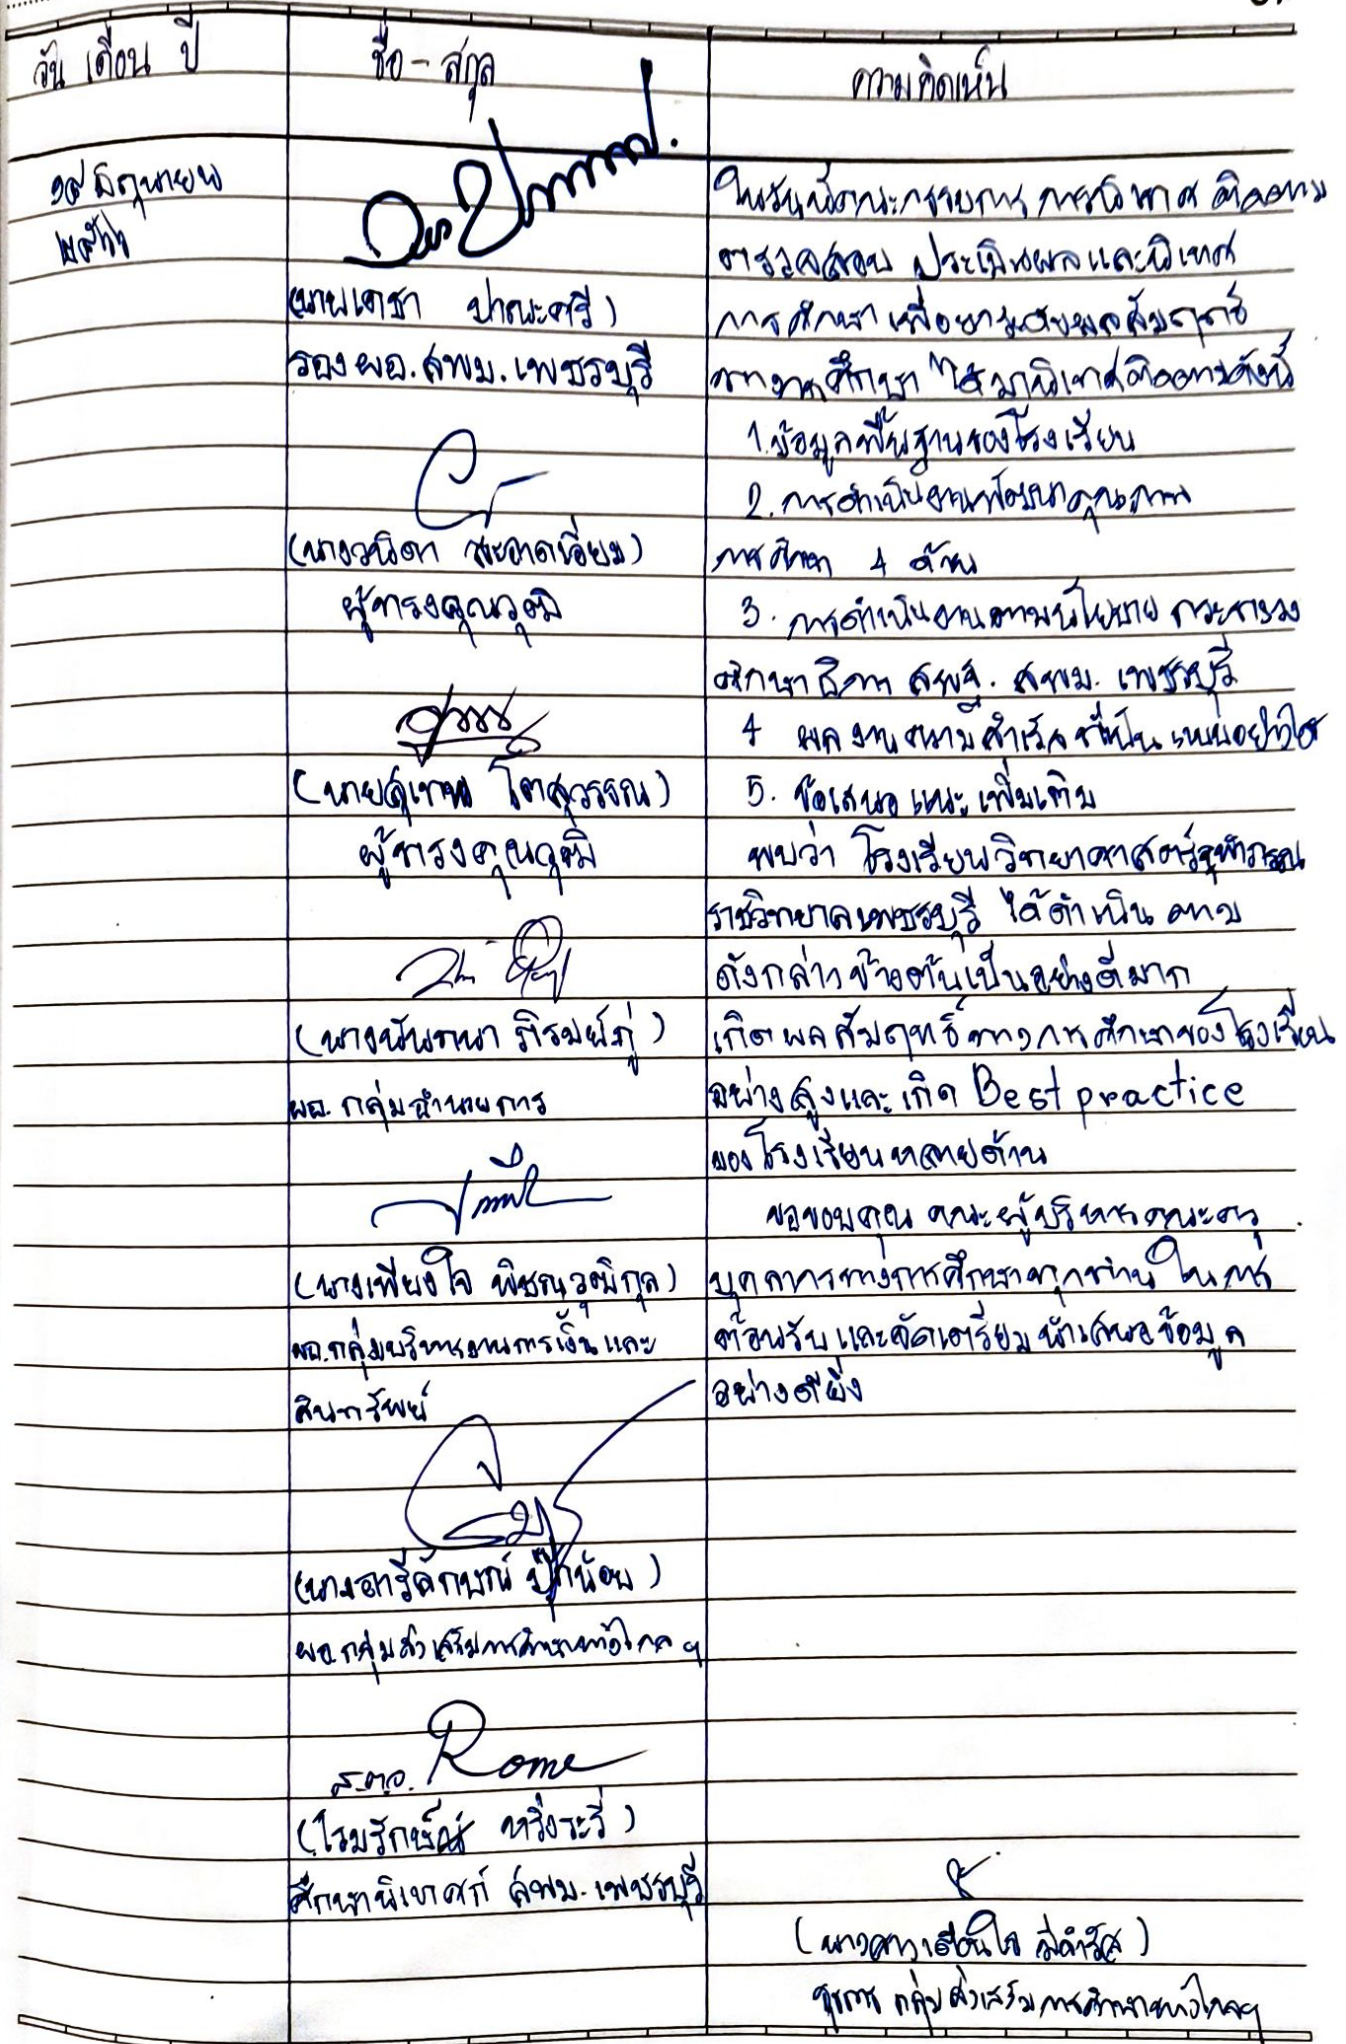 วัน เดือน ปี
ชื่อ - สกุล
ความคิดเห็น
มิถุนายน
(นายเดชา ปาณะศรี)
รองผอ. สพม. เพชรบุรี
(นางวนิดา สะอาดเอี่ยม)
ผู้ทรงคุณวุฒิ
(นายสุเทพ โตสุวรรณ)
ผู้ทรงคุณวุฒิ
(นางนันทนา ภิรมย์ภู่)
ผอ. กลุ่มอำนวยการ
(นางเพียงใจ พิชณุวุฒิกุล)
ผอ.กลุ่มบริหารงานการเงินและ
สินทรัพย์
(นางอารีลักษณ์ ปุ๊กน้อย)
ผอ. กลุ่มส่งเสริมการศึกษาทางไกล ฯ
ส.ต.อ. Rome
(โรมรักษ์ณ์ หริ่งระรี่)
ศึกษานิเทศก์ สพม. เพชรบุรี
ในวันนี้คณะกรรมการ การนิเทศ ติดตาม
ตรวจสอบ ประเมินผลและนิเทศ
การศึกษา เพื่อยกระดับผลสัมฤทธิ์
ทางการศึกษา ได้มานิเทศติดตามดังนี้
1. ข้อมูลพื้นฐานของโรงเรียน
2. การดำเนินงานพัฒนาคุณภาพ
การศึกษา 4 ด้าน
3. การดำเนินงานตามนโยบาย กระทรวง
ศึกษาธิการ สพฐ. สพม. เพชรบุรี
4 ผลงานความสำเร็จ ที่เป็นแบบอย่างได้
5. ข้อเสนอแนะเพิ่มเติม
พบว่า โรงเรียนวิทยาศาสตร์จุฬาภรณ
ราชวิทยาลัยเพชรบุรี ได้ดำเนินตาม
ดังกล่าวข้างต้นเป็นอย่างดีมาก
เกิดผลสัมฤทธิ์ทางการศึกษาของโรงเรียน
อย่างสูงและเกิด Best practice
ของโรงเรียนหลายด้าน
ขอขอบคุณ คณะผู้บริหาร คณะครู
บุคลากรทางการศึกษาทุกท่าน ในการ
ต้อนรับและจัดเตรียม นำเสนอข้อมูล
อย่างดียิ่ง
(นางสาวเตือนใจ มีดำรัส)
ธุรการ กลุ่มส่งเสริมการศึกษาทางไกลฯ